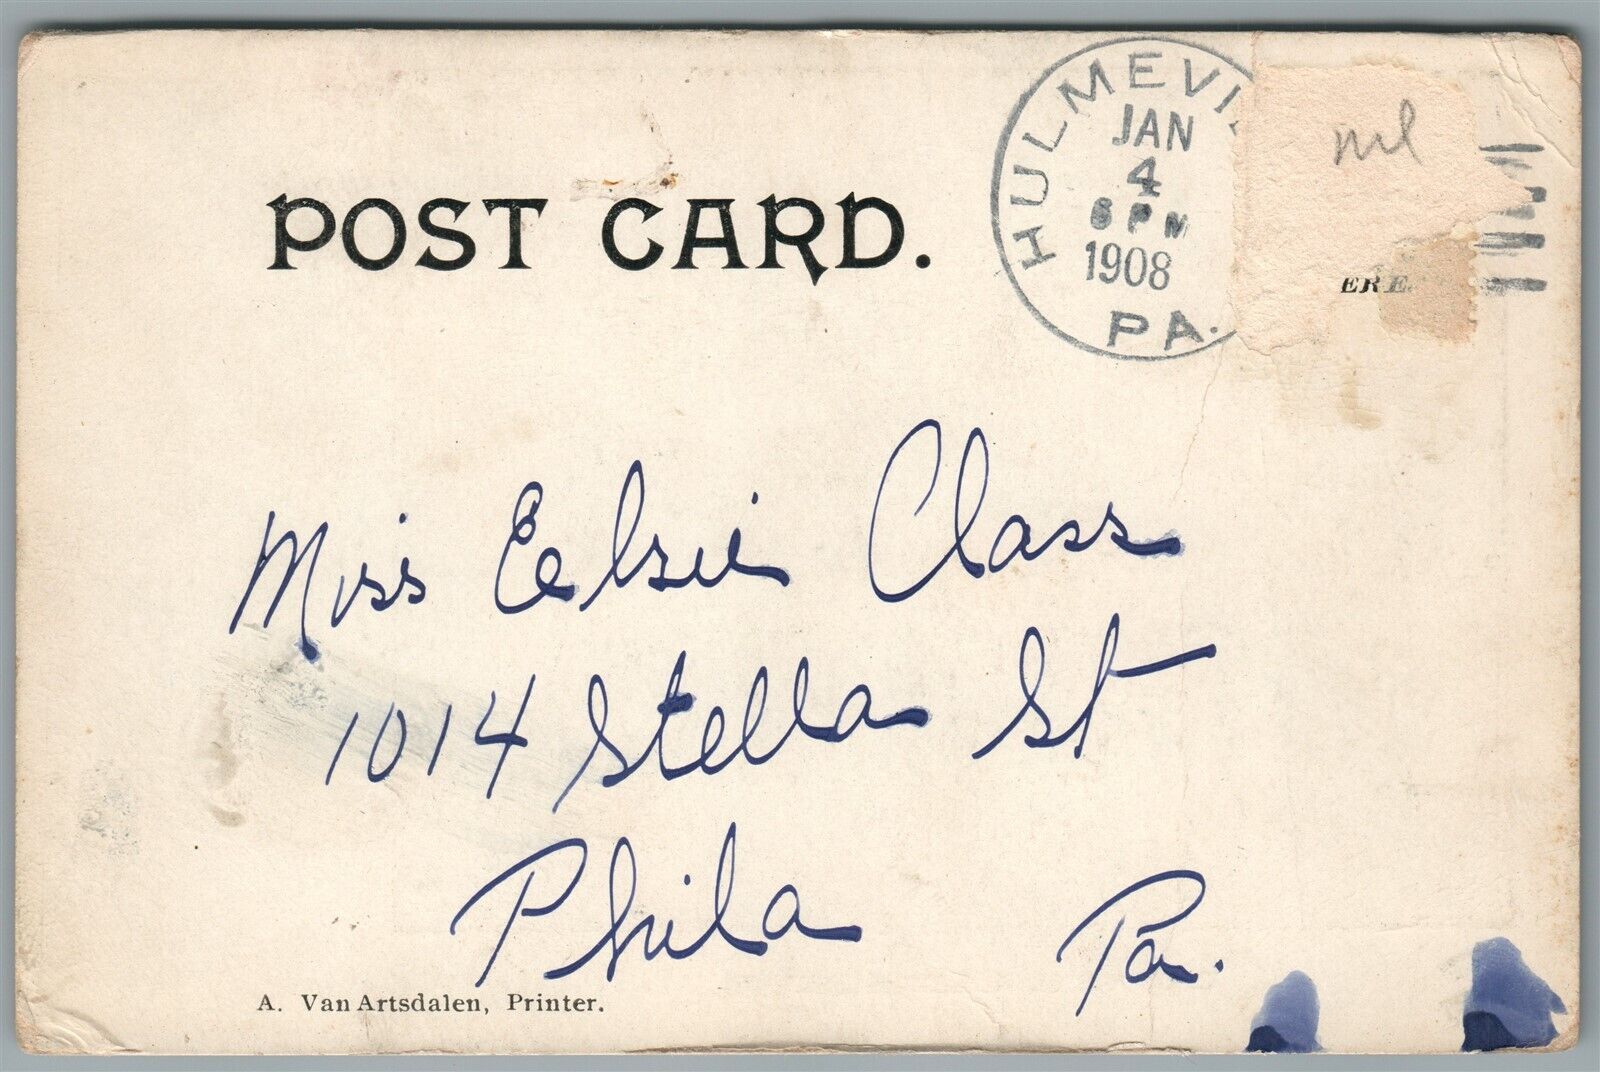 HULMEVI
JAN
4
6 PM
1908
PA.
POST CARD.
ERE
Miss Eelsie Class
1014 Stella St
Phila Pa.
A. Van Artsdalen, Printer.